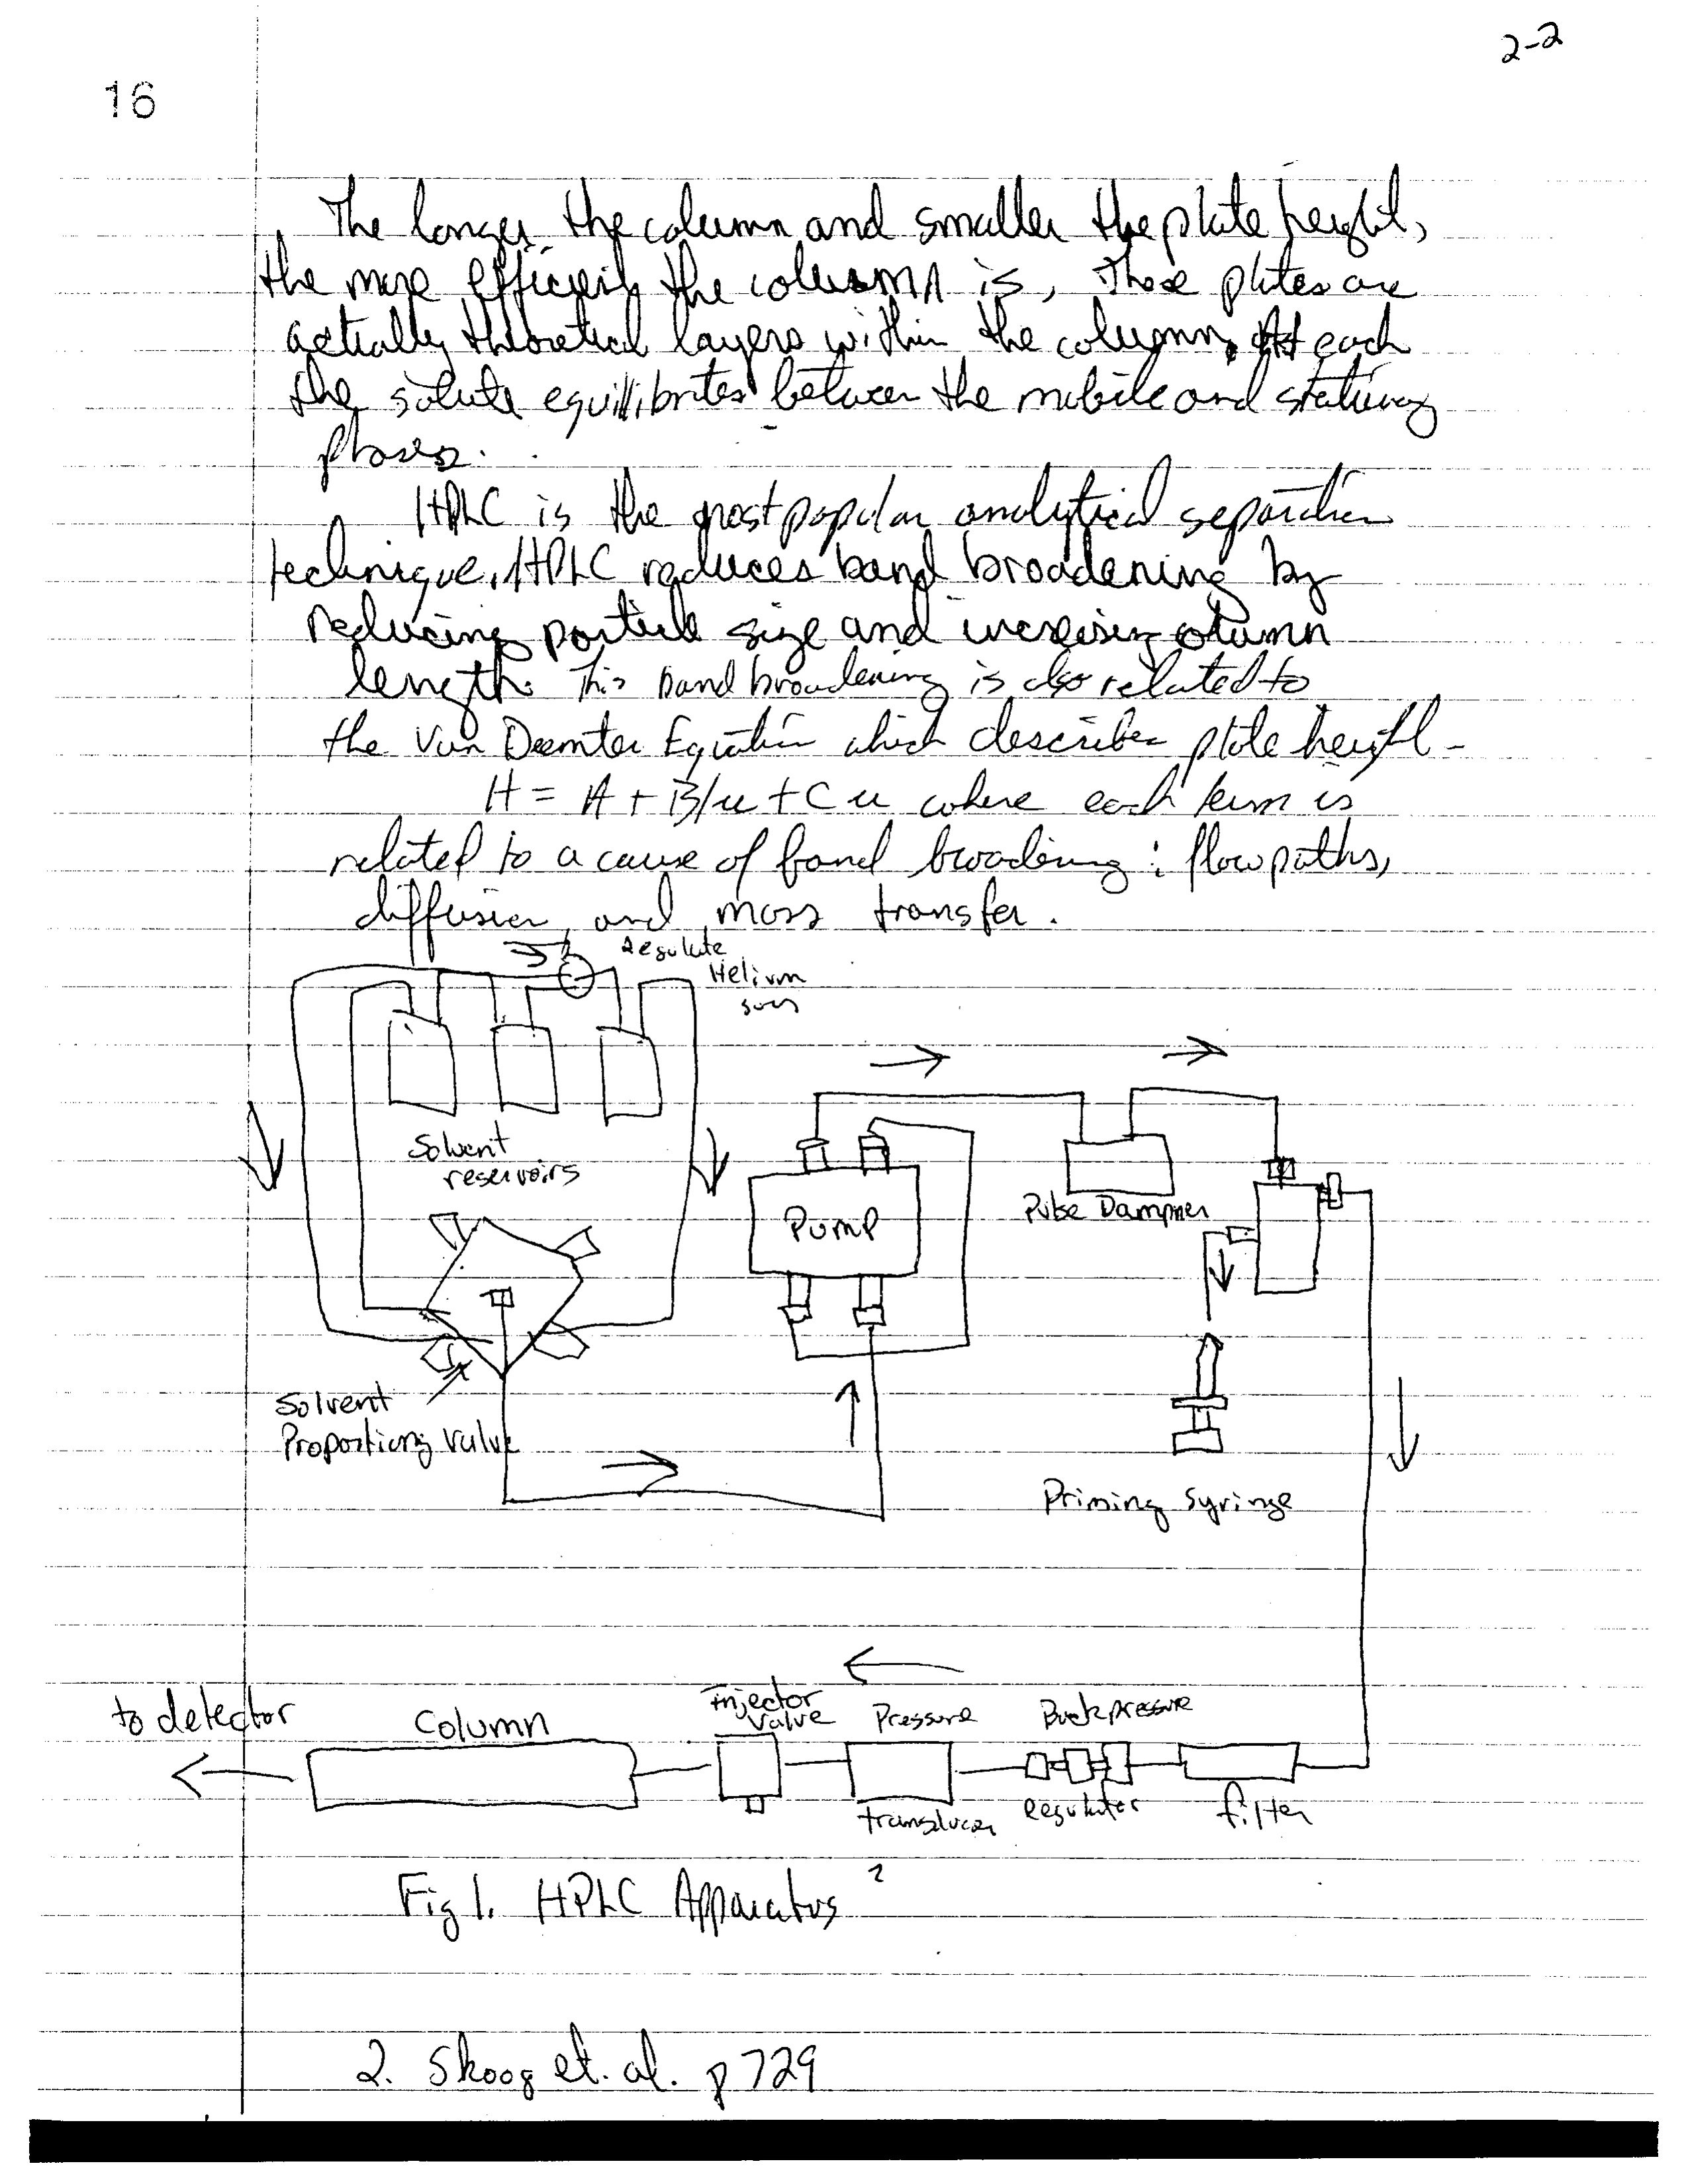 2-2
16
The longer the column and smaller the plate height,
the more efficient the column is, These plates are
actually theoretical layers within the column. At each
the solute equillibrates between the mobile and stationary
phases.
HPLC is the most popular analytical separation
technique. HPLC reduces band broadening by
reducing particle size and increasing column
length. This band broadening is also related to
the Van Deemter Equation which describes plate height -
H = A + B/u + C u where each term is
related to a cause of band broadening : flow paths,
diffusion, and mass transfer.
Regulate
Helium
Solvent
reservoirs
Pump
Pulse Dampner
Solvent
Proportiong Valve
Priming Syringe
to detector
Column
Injector
Valve
Pressure
transducer
Backpressure
regulator
filter
Fig 1. HPLC Apparatus 2
2. Skoog et. al. p 729